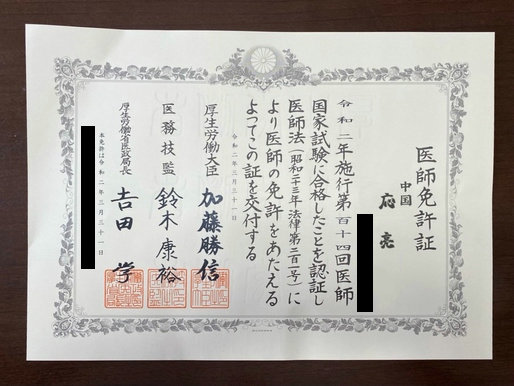 医師免許証
中国
応 亮
令和二年施行第百十四回医師
国家試験に合格したことを認証し
医師法(昭和二十三年法律第二百一号)に
より医師の免許をあたえる
よってこの証を交付する
令和二年三月三十一日
厚生労働大臣 加藤勝信
医務技監 鈴木康裕
厚生労働省医政局長 吉田 学
本免許は令和二年三月三十一日